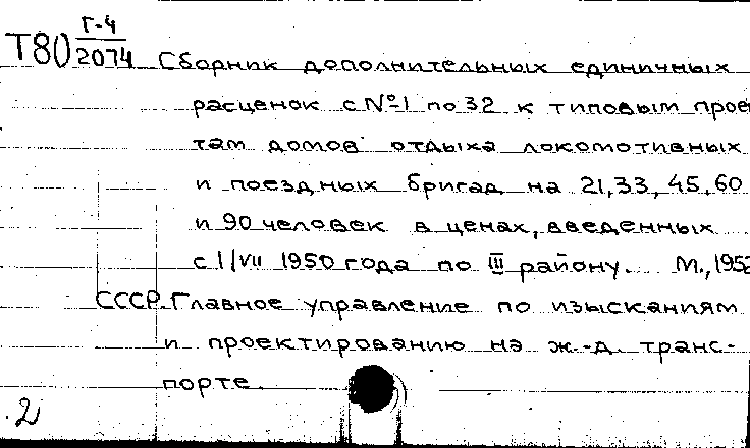 Т80 Г-4/2074 Сборник дополнительных единичных
расценок с №1 по 32 к типовым проек
там домов отдыха локомотивных
и поездных бригад на 21, 33, 45, 60
и 90 человек в ценах, введенных
с 1/VII 1950 года по III району. М., 195
СССР. Главное управление по изысканиям
и проектированию на ж.-д. транс-
порте.
2